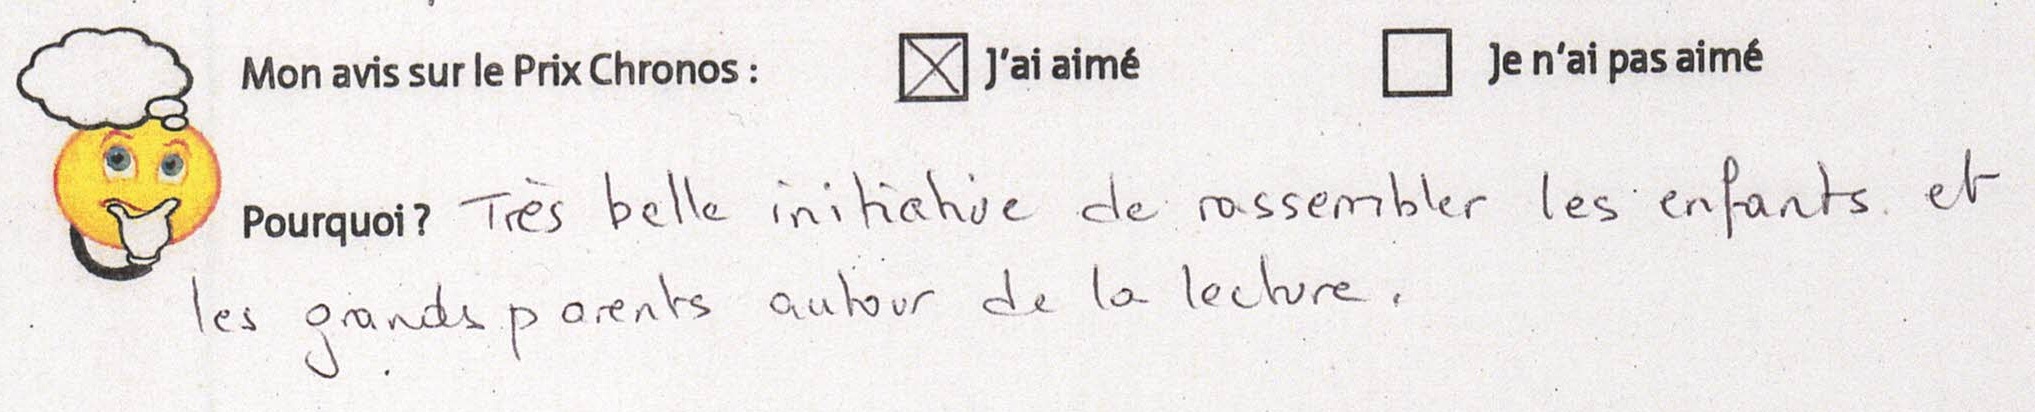 Mon avis sur le Prix Chronos : ☒ J'ai aimé ☐ Je n'ai pas aimé
Pourquoi ? Très belle initiative de rassembler les enfants et
les grands parents autour de la lecture.